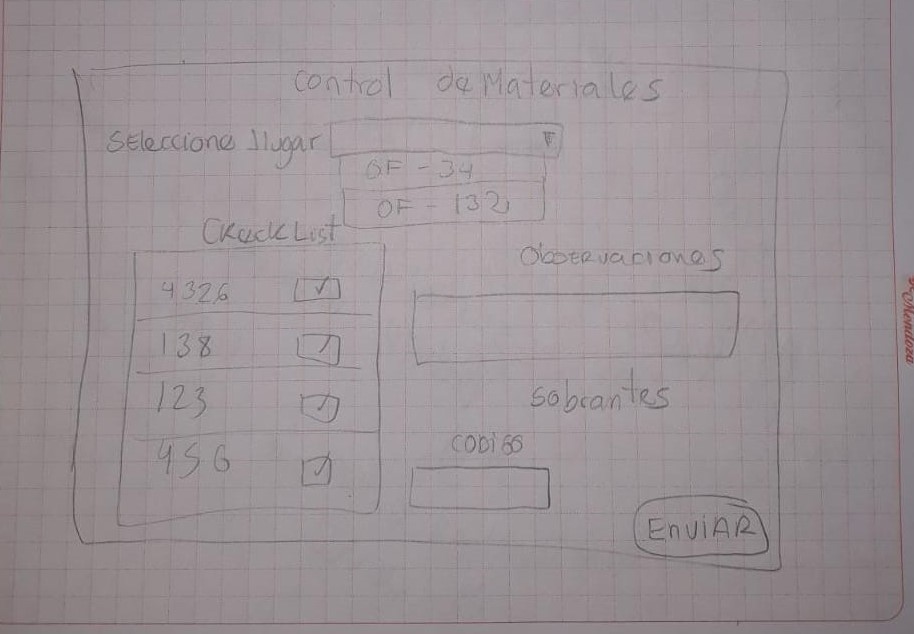 Control de Materiales
Seleccione llugar
OF - 34
OF - 132
Check List
4326
138
123
456
Observaciones
Sobrantes
CODIGO
ENVIAR